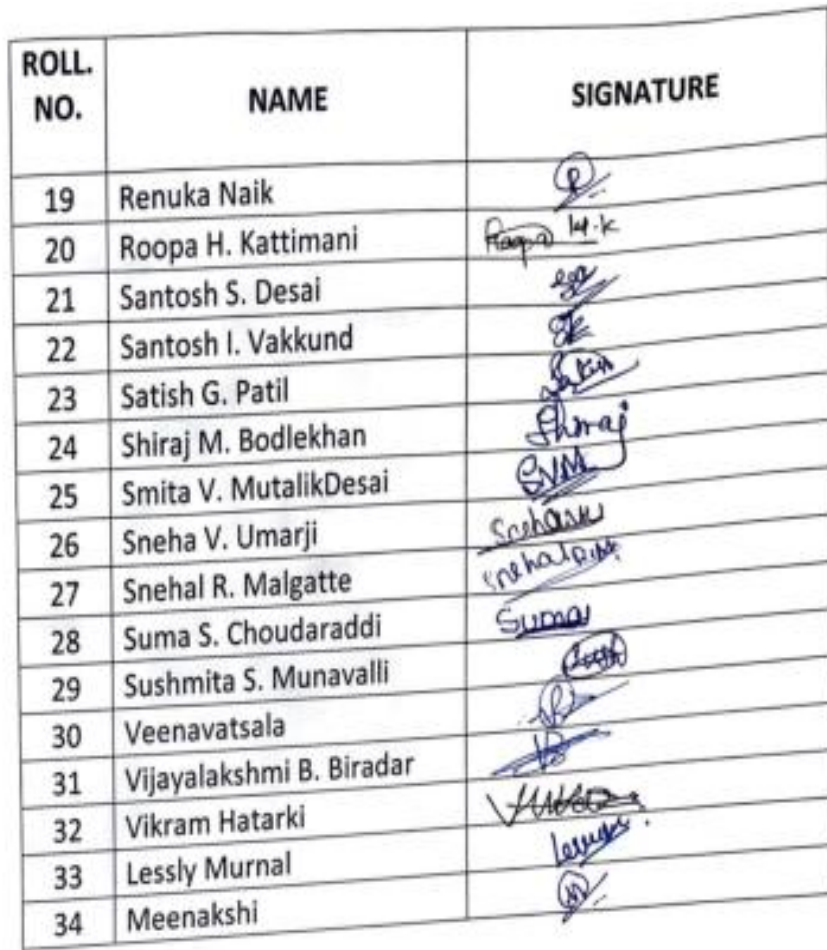 ROLL. NO. NAME SIGNATURE
19 Renuka Naik
20 Roopa H. Kattimani Roopa H.K
21 Santosh S. Desai
22 Santosh I. Vakkund
23 Satish G. Patil
24 Shiraj M. Bodlekhan Shiraj
25 Smita V. MutalikDesai SVM
26 Sneha V. Umarji
27 Snehal R. Malgatte
28 Suma S. Choudaraddi Suma
29 Sushmita S. Munavalli
30 Veenavatsala
31 Vijayalakshmi B. Biradar
32 Vikram Hatarki
33 Lessly Murnal
34 Meenakshi